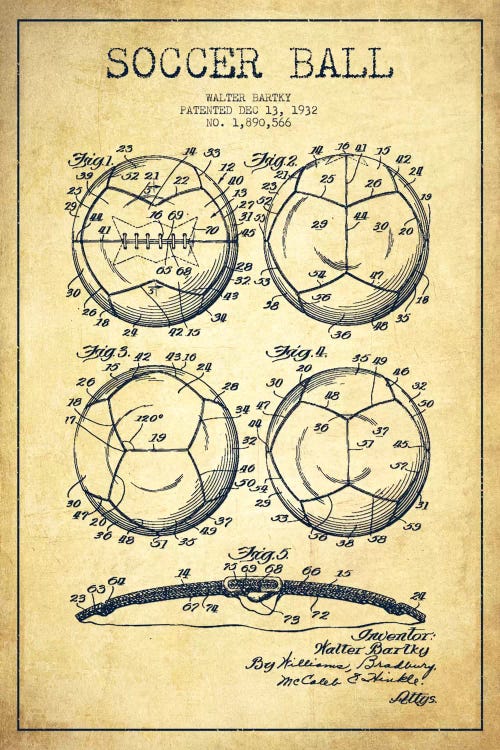 SOCCER BALL
WALTER BARTKY
PATENTED DEC 13, 1932
NO. 1,890,566
Fig.1.
23
39
52
21
14
33
12
40
25
22
13
29
5
27
44
16
69
31
41
70
45
65
68
28
32
30
3
43
26
18
124
42
15
34
Fig.2.
14
16
41
15
42
23
24
21
25
26
19
52
29
44
30
20
31
53
54
47
38
36
18
36
48
35
Fig.3.
15
42
43
16
26
24
28
18
17
120°
34
19
32
46
50
30
47
20
37
36
48
51
35
49
Fig.4.
35
49
20
46
32
30
48
50
47
36
37
51
45
52
57
54
29
31
53
59
56
38
58
Fig.5.
75
69
68
64
14
66
15
63
23
24
67
74
73
72
Inventor:
Walter Bartky
By Williams, Bradbury,
McCaleb & Hinkle.
Attys.